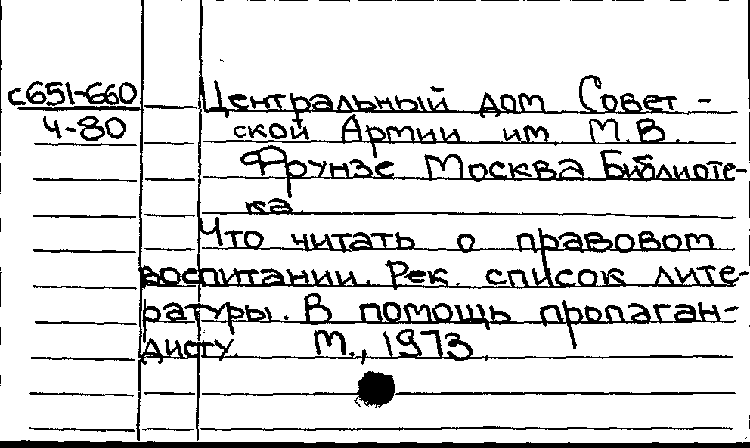 с651-660 Центральный дом Совет-
4-80 ской Армии им. М.В.
Фрунзе Москва Библиоте-
ка
Что читать о правовом
воспитании. Рек. список лите-
ратуры. В помощь пропаган-
дисту. М., 1973.